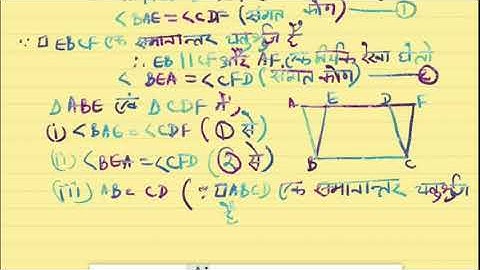 <BAE = <CDF (संगत कोण) — ①
∵ □ EBCF एक समानान्तर चतुर्भुज हैं
∴ EB || CF और AF एक तिर्यक रेखा है तो
<BEA = <CFD (संगत कोण) — ②
Δ ABE एवं Δ CDF में,
A E D F
(i) <BAE = <CDF (① से)
(ii) <BEA = <CFD (② से)
B C
(iii) AB = CD (∵ □ABCD एक समानान्तर चतुर्भुज
हैं